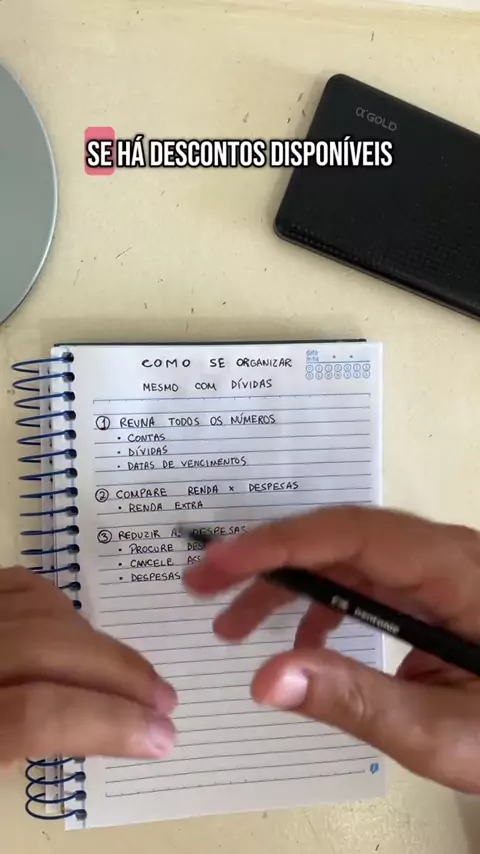 SE HÁ DESCONTOS DISPONÍVEIS
α'GOLD
COMO SE ORGANIZAR
MESMO COM DÍVIDAS
data
① REUNA TODOS OS NÚMEROS
• CONTAS
• DÍVIDAS
• DATAS DE VENCIMENTOS
② COMPARE RENDA × DESPESAS
• RENDA EXTRA
③ REDUZIR AS DESPESAS
• PROCURE
• CANCELE
• DESPESAS